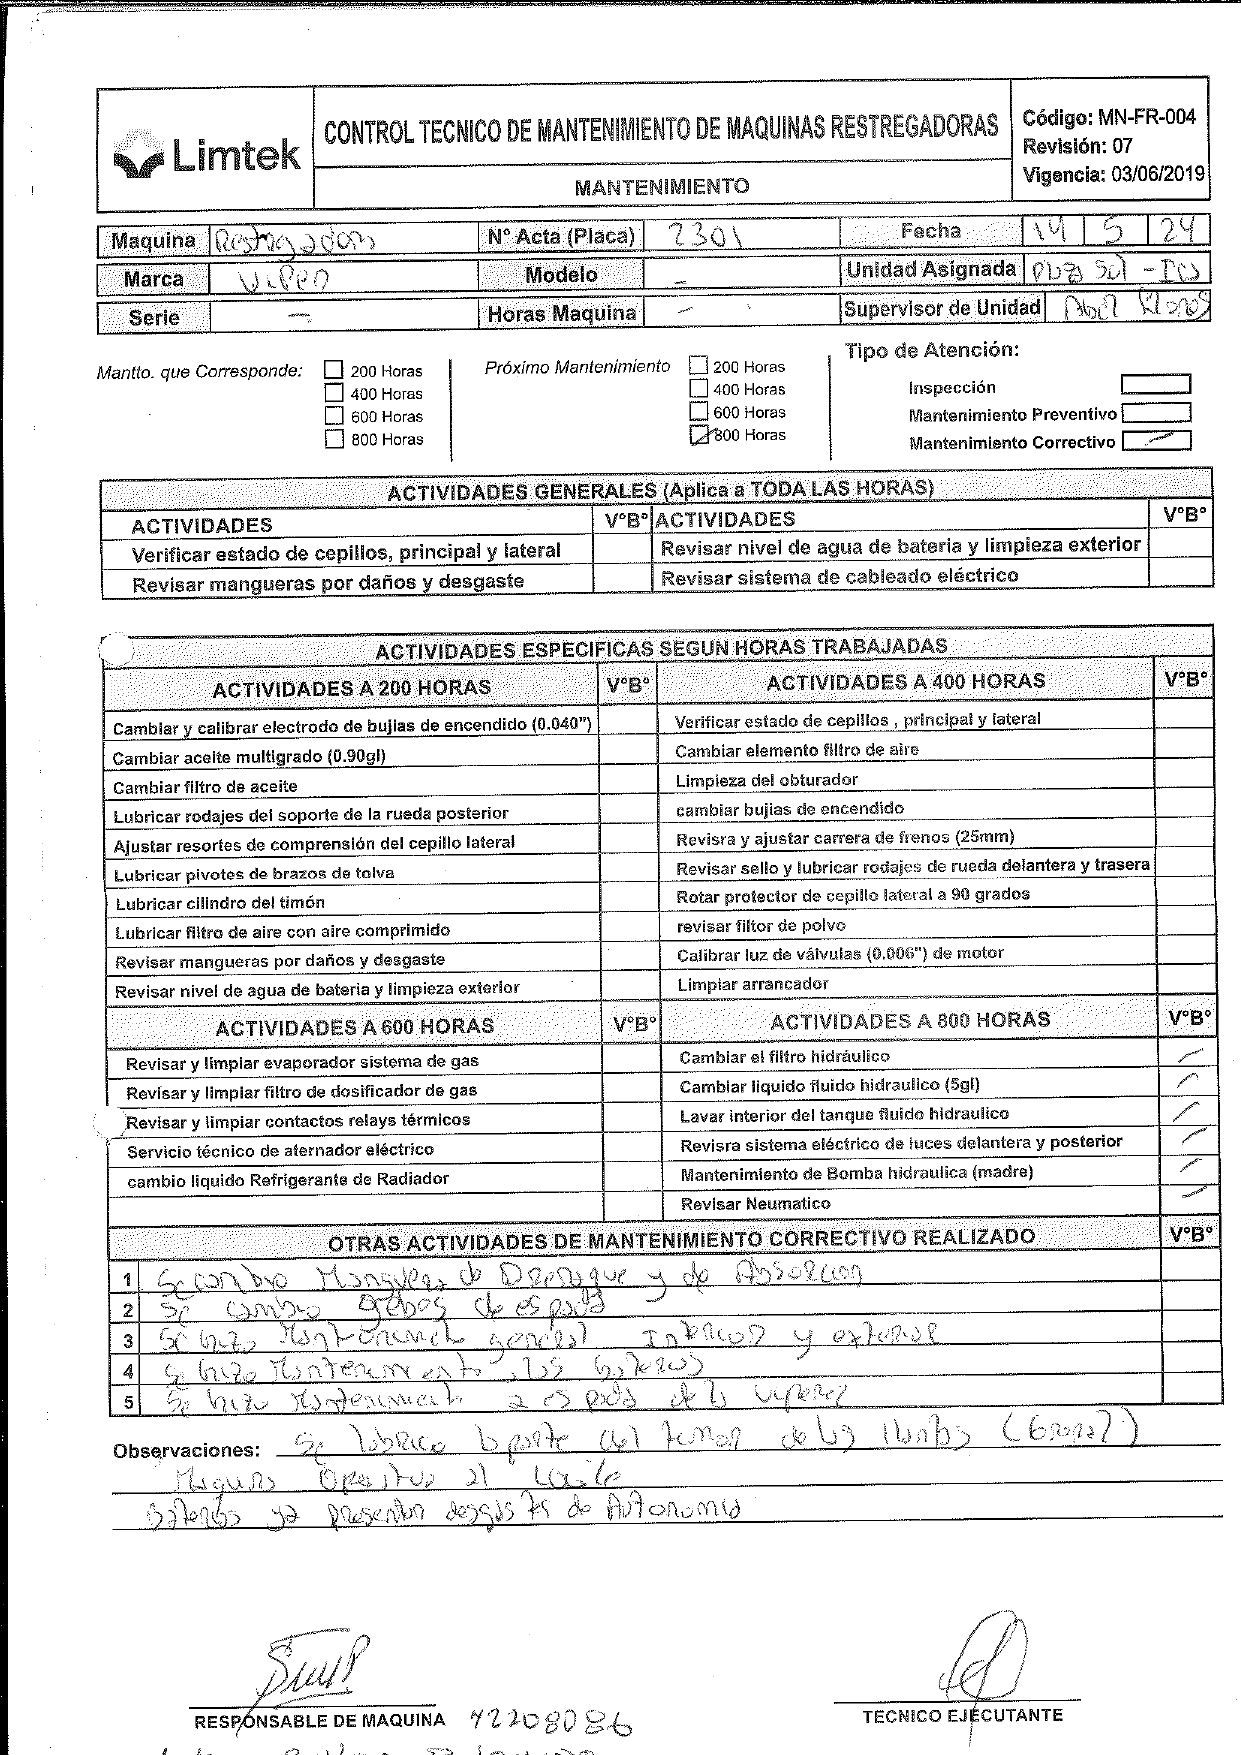 Limtek
CONTROL TECNICO DE MANTENIMIENTO DE MAQUINAS RESTREGADORAS
MANTENIMIENTO
Código: MN-FR-004
Revisión: 07
Vigencia: 03/06/2019
Maquina Restregadora N° Acta (Placa) 2301 Fecha 14 5 24
Marca Viper Modelo - Unidad Asignada Plaza Sol - Ica
Serie - Horas Maquina - Supervisor de Unidad Abel Flores
Mantto. que Corresponde: 200 Horas
400 Horas
600 Horas
800 Horas
Próximo Mantenimiento 200 Horas
400 Horas
600 Horas
800 Horas
Tipo de Atención:
Inspección
Mantenimiento Preventivo
Mantenimiento Correctivo
ACTIVIDADES GENERALES (Aplica a TODA LAS HORAS)
ACTIVIDADES V°B° ACTIVIDADES V°B°
Verificar estado de cepillos, principal y lateral Revisar nivel de agua de bateria y limpieza exterior
Revisar mangueras por daños y desgaste Revisar sistema de cableado eléctrico
ACTIVIDADES ESPECIFICAS SEGUN HORAS TRABAJADAS
ACTIVIDADES A 200 HORAS V°B° ACTIVIDADES A 400 HORAS V°B°
Cambiar y calibrar electrodo de bujias de encendido (0.040") Verificar estado de cepillos , principal y lateral
Cambiar aceite multigrado (0.90gl) Cambiar elemento filtro de aire
Cambiar filtro de aceite Limpieza del obturador
Lubricar rodajes del soporte de la rueda posterior cambiar bujias de encendido
Ajustar resortes de comprensión del cepillo lateral Revisra y ajustar carrera de frenos (25mm)
Lubricar pivotes de brazos de tolva Revisar sello y lubricar rodajes de rueda delantera y trasera
Lubricar cilindro del timón Rotar protector de cepillo lateral a 90 grados
Lubricar filtro de aire con aire comprimido revisar filtor de polvo
Revisar mangueras por daños y desgaste Calibrar luz de válvulas (0.006") de motor
Revisar nivel de agua de bateria y limpieza exterior Limpiar arrancador
ACTIVIDADES A 600 HORAS V°B° ACTIVIDADES A 800 HORAS V°B°
Revisar y limpiar evaporador sistema de gas Cambiar el filtro hidráulico
Revisar y limpiar filtro de dosificador de gas Cambiar liquido fluido hidraulico (5gl)
Revisar y limpiar contactos relays térmicos Lavar interior del tanque fluido hidraulico
Servicio técnico de aternador eléctrico Revisra sistema eléctrico de luces delantera y posterior
cambio liquido Refrigerante de Radiador Mantenimiento de Bomba hidraulica (madre)
Revisar Neumatico
OTRAS ACTIVIDADES DE MANTENIMIENTO CORRECTIVO REALIZADO V°B°
1 Se cambio Mangueras de Drenaque y de Absorcion
2 Se cambio gebes de espada
3 Se hizo Mantenimiento general Interior y exterior
4 Se hizo Mantenimiento las baterias
5 Se hizo Mantenimiento a espada de la
Observaciones: Se lubrico la parte del timon de las llantas
Maquina Operativa al
baterias ya presentan desgastes de Autonomia
RESPONSABLE DE MAQUINA 42208086
TECNICO EJECUTANTE